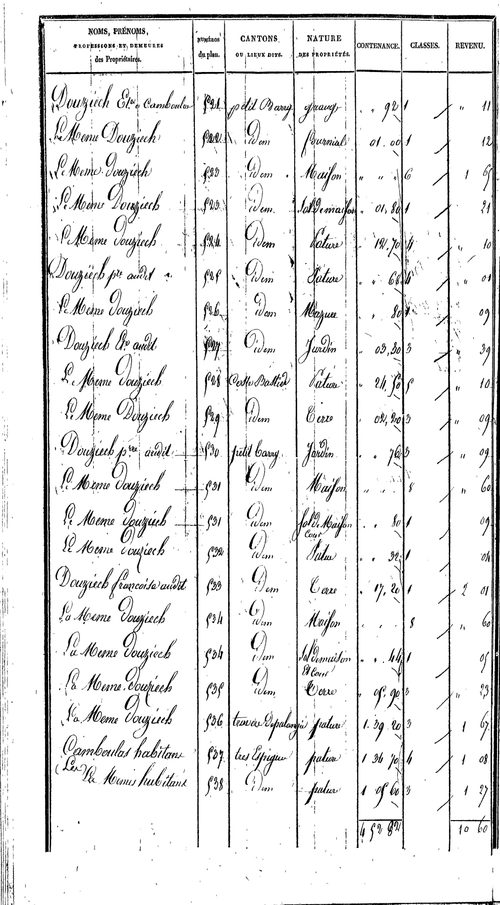 NOMS, PRÉNOMS, PROFESSIONS ET DEMEURES des Propriétaires. NUMÉROS du plan. CANTONS, OU LIEUX DITS. NATURE DES PROPRIÉTÉS. CONTENANCE. CLASSES. REVENU.
Douziech Etne a Camboulas 521 petit Barry grange " " 92 1 " 11
Le Meme Douziech 522 idem fournial 01 00 1 12
Le Meme douziech 523 idem Maison " " " 6 1 65
Le Meme Douziech 523 idem Sol de maison " 01 80 1 21
Le Meme Douziech 524 idem Pature " 12 70 4 " 10
Douziech pre audit 525 idem Pature " " 68 4 " 01
Le Meme douziech 526 idem Mazure " 80 1 09
Douziech Etne audit 527 idem Jardin " 03 30 3 " 39
Le Meme douziech 528 Pature " 24 50 5 " 10
Le Meme Douziech 529 idem Terre " 02 20 3 " 09
Douziech pre audit 530 petit barry Jardin " " 76 3 " 09
Le Meme Douziech 531 idem Maison " " " 8 " 60
Le Meme douziech 531 idem Sol de Maison Cour " " 80 1 09
Le Meme Douziech 532 idem Patur " " 32 1 04
Douziech francoise audit 533 idem Terre " 17 20 1 2 01
La Meme douziech 534 idem Maison " " " 8 " 60
La Meme douziech 534 idem Sol de maison Et Cour " " 44 1 05
La Meme Douziech 535 idem Terre " 05 90 3 " 23
La Meme douziech 536 pature 1 39 20 3 1 67
Camboulas habitans 537 pature 1 36 70 4 1 08
Les Memes habitans 538 idem pature 1 05 60 3 1 27
4 52 82 10 60